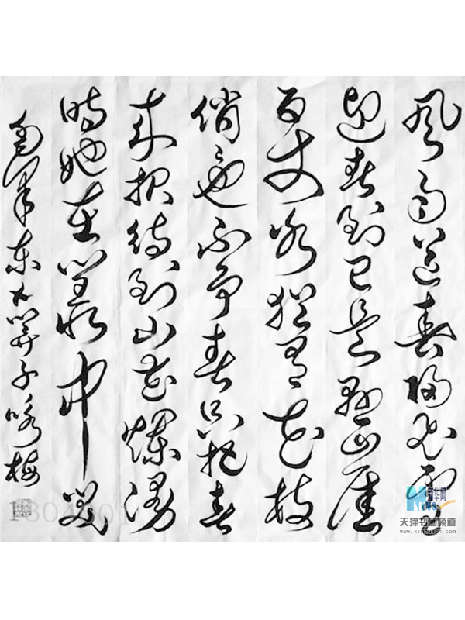 风雨送春归飞雪
迎春到已是悬崖
百丈冰犹有花枝
俏也不争春只把春
来报待到山花烂漫
时她在丛中笑
毛泽东卜算子咏梅